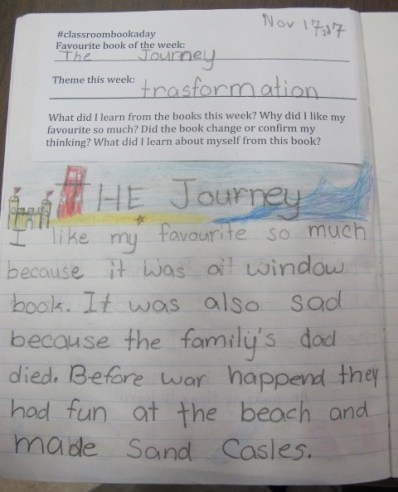 Nov 17, 17
#classroombookaday
Favourite book of the week:
The Journey
Theme this week:
trasformation
What did I learn from the books this week? Why did I like my
favourite so much? Did the book change or confirm my
thinking? What did I learn about myself from this book?
THE Journey
I like my favourite so much
because it was a window
book. It was also sad
because the family's dad
died. Before war happend they
had fun at the beach and
made Sand Casles.